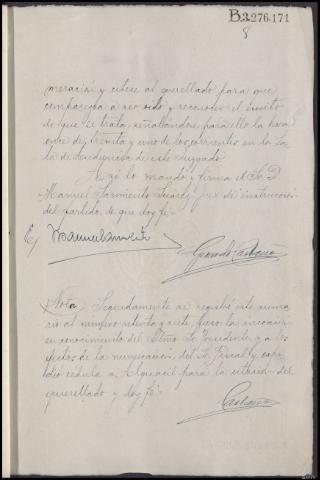 B.3.276.171
8
meración y cítese al querellado para que
comparezca a ser oido y reconocer el escrito
de que se trata, señalándose para ello la hora
once del treinta y uno de los corrientes en la Sa
la de Audiencia de este Juzgado.
Así lo mandó y firma el Sr. D.
Manuel Sarmiento Suarez Juez de instrucción
del partido, de que doy fé.
E/
Nota/ Seguidamente se registró este suma
rio al número setenta y siete,
conocimiento del Iltmo. Sr. Presidente, y a los
efectos de la numeración, del Sr. Fiscal y expi
dió cédula a Alguacil para la citación del
querellado y doy fé.